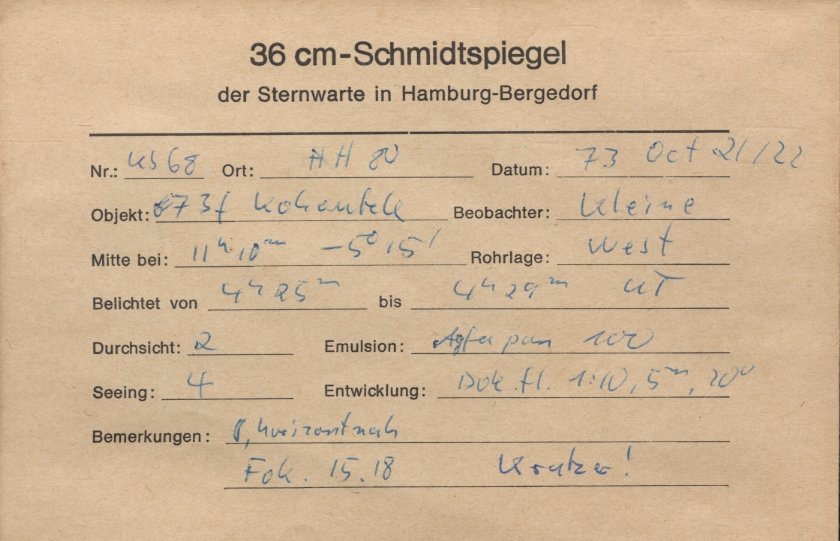 36 cm-Schmidtspiegel
der Sternwarte in Hamburg-Bergedorf
Nr.: KS68 Ort: HH 80 Datum: 73 Oct 21/22
Objekt: 73f Kohoutek Beobachter: Kleine
Mitte bei: 11h 10m -5° 15' Rohrlage: West
Belichtet von 4h 25m bis 4h 29m UT
Durchsicht: 2 Emulsion: Agfa pan 100
Seeing: 4 Entwicklung: Dok. fl. 1:10, 5m, 20°
Bemerkungen: horizontnah
Fok. 15.18 Kratzer!